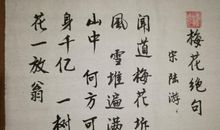 梅花绝句
宋 陆游
闻道梅花坼
風 雪堆遍满
山中何方可
身千亿 一树
花一放翁